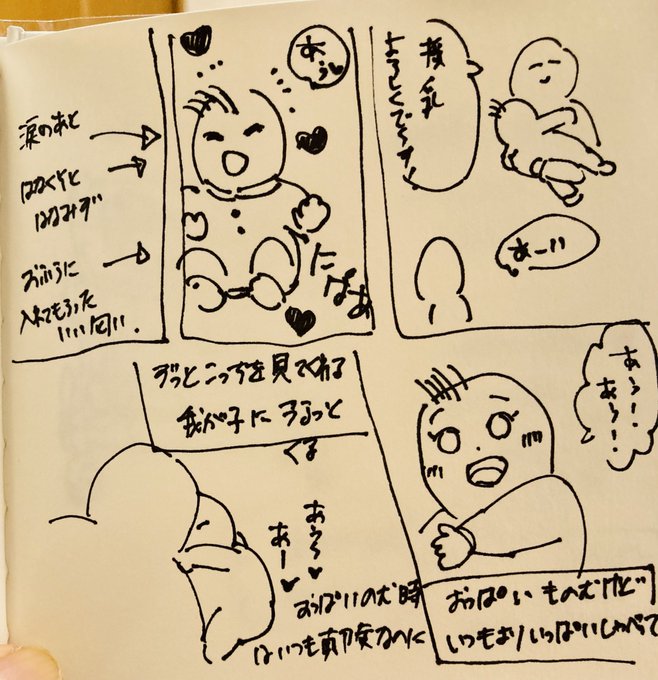 授乳
よろしくでーす!
あーい
あぅ
にぱあ
涙のあと
はなくそと
はなみず
おふろに
入れてもらった
いい匂い.
あぅー!
あぅー!
おっぱいものむけど
いつもよりいっぱいしゃべって
ずっとこっちを見てくれる
我が子にうるっと
くる
あぅ〜
あー
おっぱいのむ時
はいつも真剣なのに